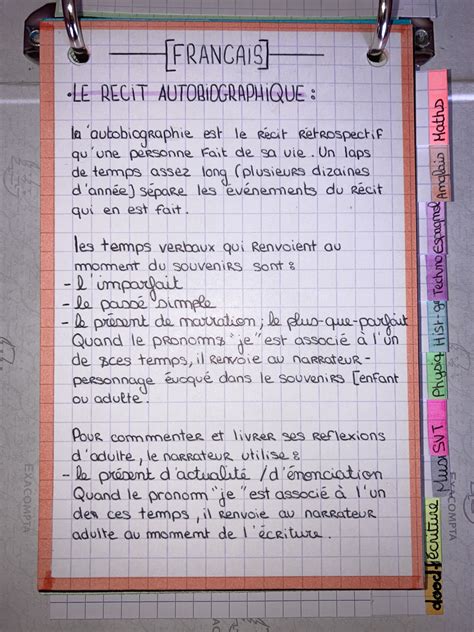 [FRANCAIS]
• LE RECIT AUTOBIOGRAPHIQUE :
la'autobiographie est le récit retrospectif
qu'une personne fait de sa vie. Un laps
de temps assez long (plusieurs dizaines
d'année) sépare les événements du récit
qui en est fait.
les temps verbaux qui renvoient au
moment du souvenirs sont :
- l'imparfait
- le passé simple
- le présent de narration ; le plus-que-parfait
Quand le pronoms "je" est associé à l'un
de sces temps, il renvoie au narrateur -
personnage évoqué dans le souvenirs [enfant
ou adulte.
Pour commenter et livrer ses reflexions
d'adulte, le narrateur utilise :
- le présent d'actualité / d'énonciation
Quand le pronom "je" est associé à l'un
des ces temps, il renvoie au narrateur
adulte au moment de l'écriture.
Maths
Anglais
Espagnol
Techno
Hist-g
Physiq
SVT
Musi
écriture
EXACOMPTA
EXACOMPTA